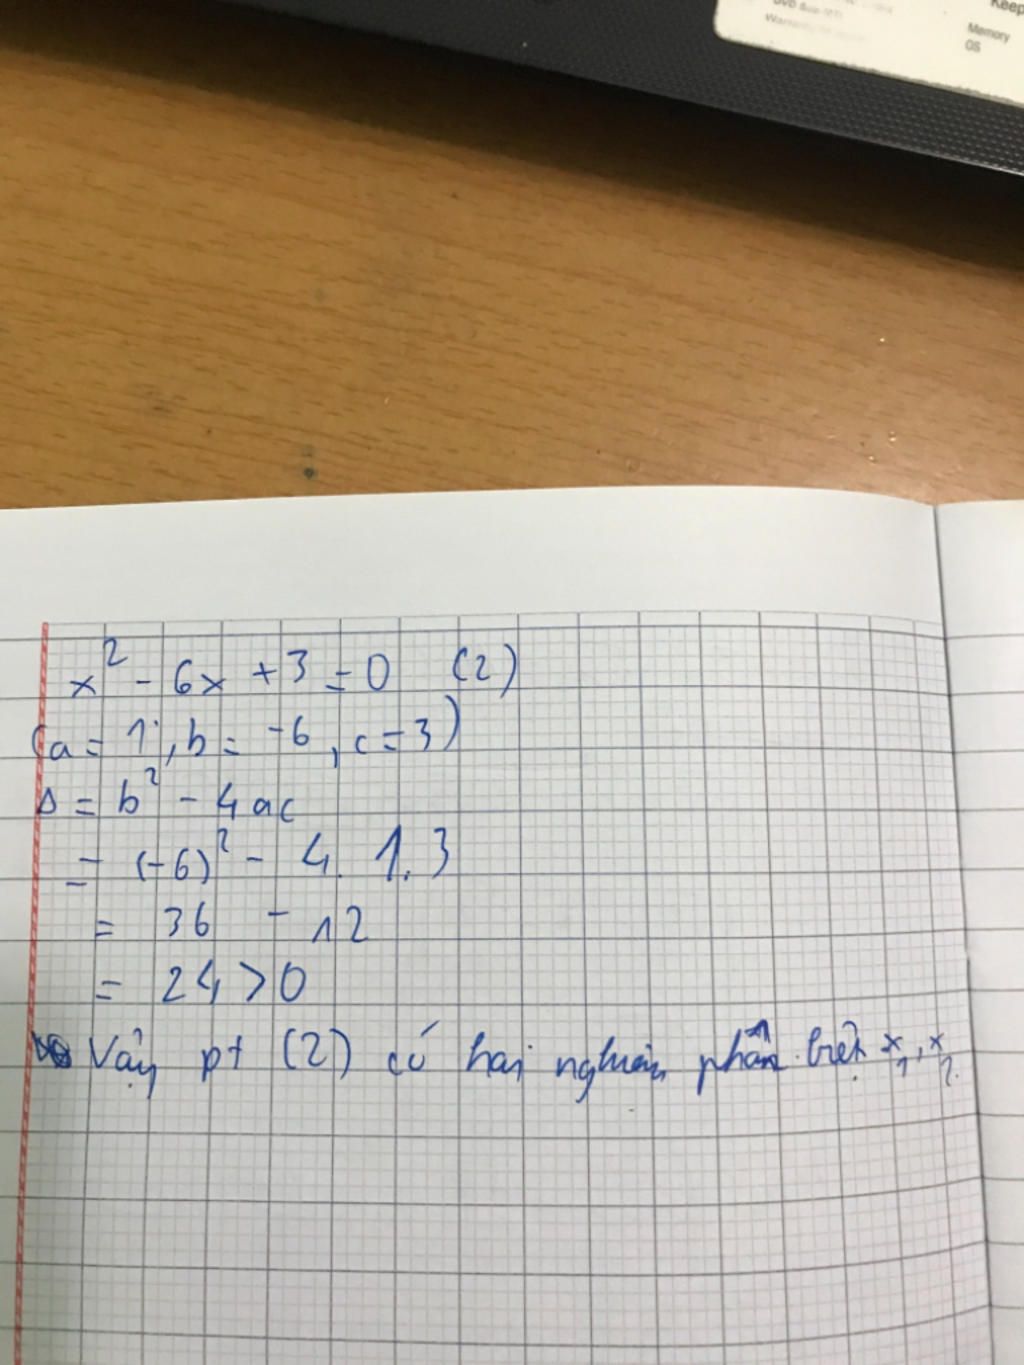 Keep
Memory
OS
x² - 6x + 3 = 0 (2)
(a = 1, b = -6, c = 3)
Δ = b² - 4ac
= (-6)² - 4.1.3
= 36 - 12
= 24 > 0
Vậy pt (2) có hai nghiệm phân biệt x₁, x₂.